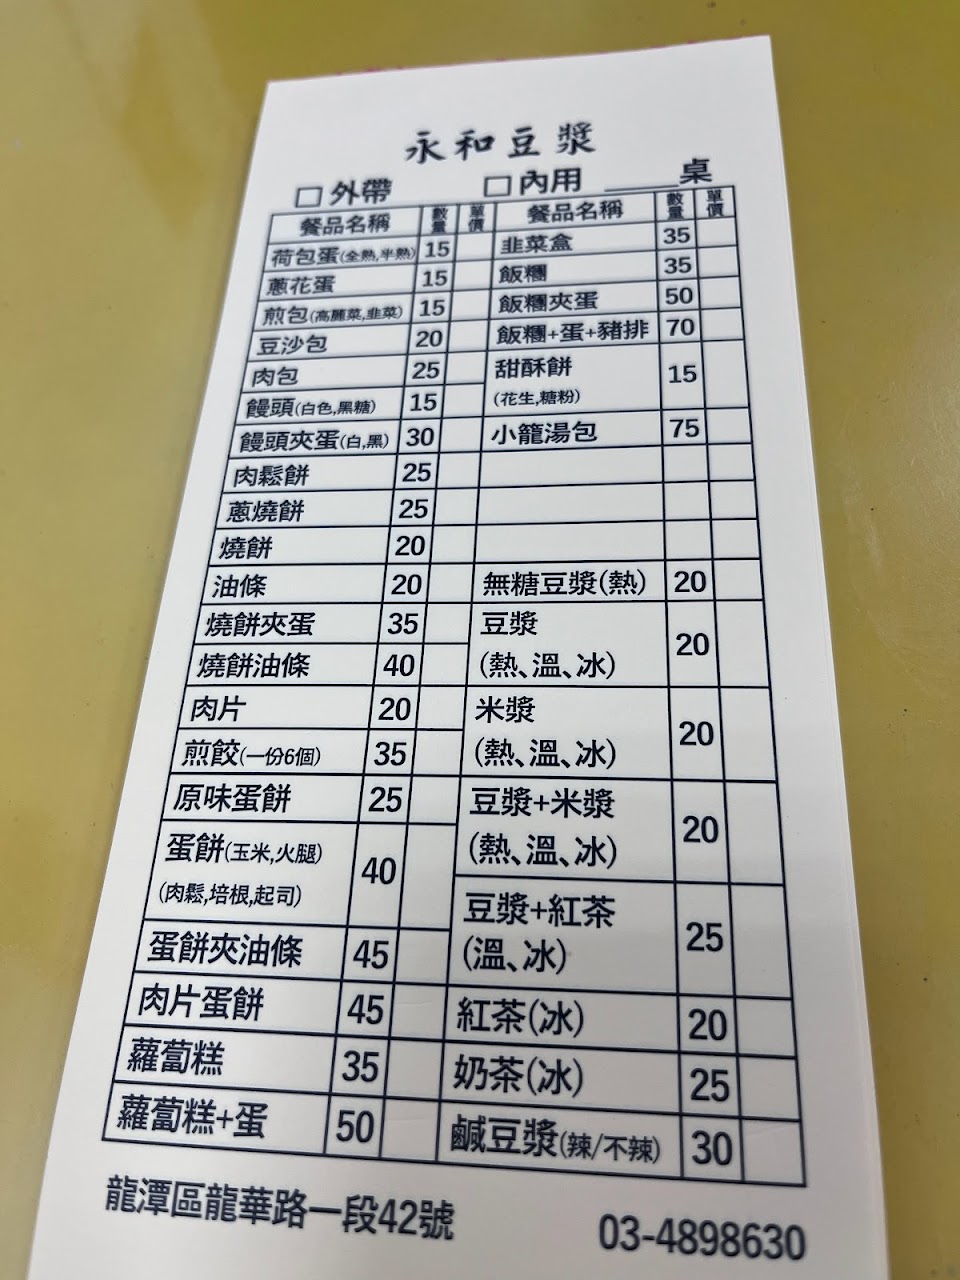 永和豆漿
□ 外帶 □ 內用 _____桌
餐品名稱 數量 單價 餐品名稱 數量 單價
荷包蛋(全熟,半熟) 15
蔥花蛋 15
煎包(高麗菜,韭菜) 15
豆沙包 20
肉包 25
饅頭(白色,黑糖) 15
饅頭夾蛋(白,黑) 30
肉鬆餅 25
蔥燒餅 25
燒餅 20
油條 20
燒餅夾蛋 35
燒餅油條 40
肉片 20
煎餃(一份6個) 35
原味蛋餅 25
蛋餅(玉米,火腿)
(肉鬆,培根,起司) 40
蛋餅夾油條 45
肉片蛋餅 45
蘿蔔糕 35
蘿蔔糕+蛋 50
韭菜盒 35
飯糰 35
飯糰夾蛋 50
飯糰+蛋+豬排 70
甜酥餅
(花生,糖粉) 15
小籠湯包 75
無糖豆漿(熱) 20
豆漿
(熱、溫、冰) 20
米漿
(熱、溫、冰) 20
豆漿+米漿
(熱、溫、冰) 20
豆漿+紅茶
(溫、冰) 25
紅茶(冰) 20
奶茶(冰) 25
鹹豆漿(辣/不辣) 30
龍潭區龍華路一段42號 03-4898630